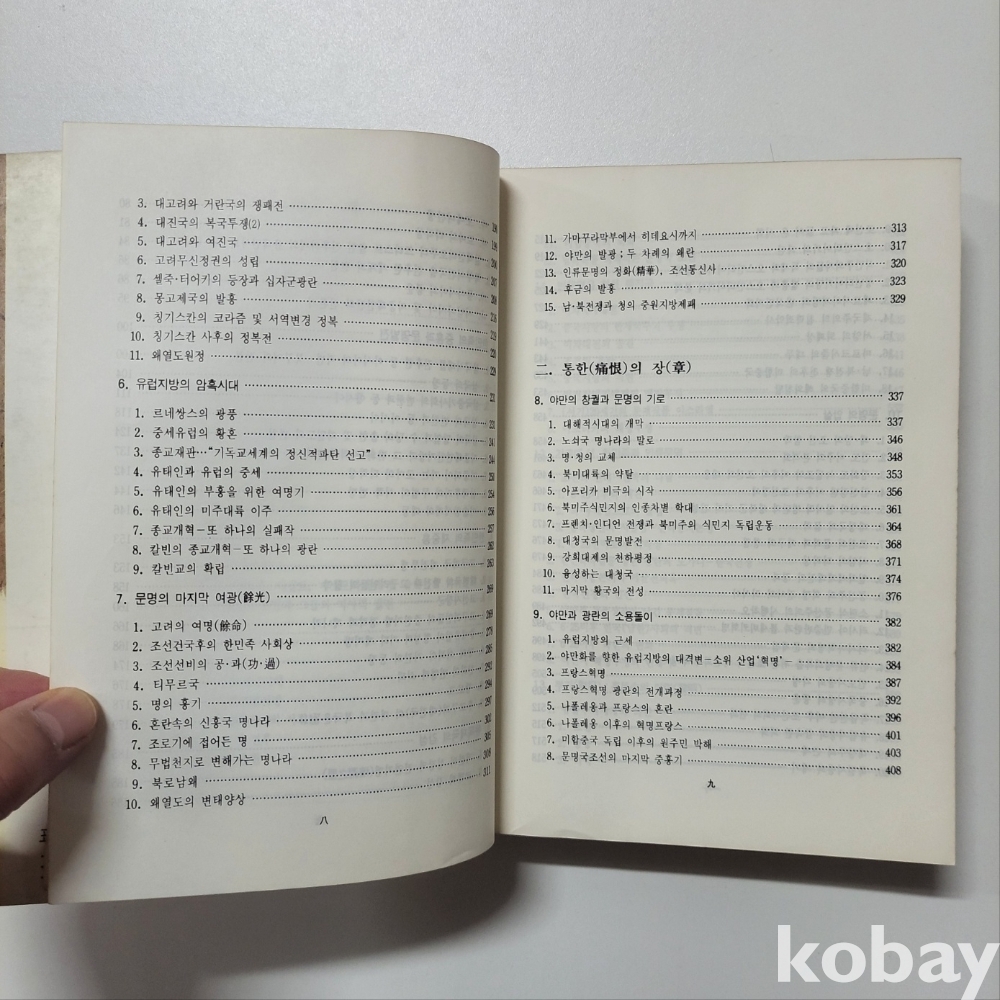 3. 대고려와 거란국의 쟁패전
4. 대진국의 복국투쟁(2) 198
5. 대고려와 여진국 199
6. 고려무신정권의 성립 206
7. 셀죽·터어키의 등장과 십자군광란 207
8. 몽고제국의 발흥 209
9. 칭기스칸의 코라즘 및 서역변경 정복 216
10. 칭기스칸 사후의 정복전 220
11. 왜열도원정 229
6. 유럽지방의 암흑시대 231
1. 르네쌍스의 광풍 231
2. 중세유럽의 황혼 241
3. 종교재판…"기독교세계의 정신적파탄 선고" 244
4. 유태인과 유럽의 중세 250
5. 유태인의 부흥을 위한 여명기 254
6. 유태인의 미주대륙 이주 256
7. 종교개혁-또 하나의 실패작 257
8. 칼빈의 종교개혁-또 하나의 광란 262
9. 칼빈교의 확립 263
7. 문명의 마지막 여광(餘光) 269
1. 고려의 여명(餘命) 269
2. 조선건국후의 한민족 사회상 278
3. 조선선비의 공·과(功·過)
4. 티무르국
5. 명의 흥기 297
6. 혼란속의 신흥국 명나라 302
7. 조로기에 접어든 명 305
8. 무법천지로 변해가는 명나라 308
9. 북로남왜 311
10. 왜열도의 변태양상
八
11. 가마꾸라막부에서 히데요시까지 313
12. 야만의 발광; 두 차례의 왜란 317
13. 인류문명의 정화(精華), 조선통신사 320
14. 후금의 발흥 323
15. 남·북전쟁과 청의 중원지방제패 329
二. 통한(痛恨)의 장(章)
8. 야만의 창궐과 문명의 기로 337
1. 대해적시대의 개막 337
2. 노쇠국 명나라의 말로 346
3. 명·청의 교체 348
4. 북미대륙의 약탈 353
5. 아프리카 비극의 시작 356
6. 북미주식민지의 인종차별 학대 361
7. 프랜치·인디언 전쟁과 북미주의 식민지 독립운동 364
8. 대청국의 문명발전 368
9. 강희대제의 천하평정 371
10. 융성하는 대청국 374
11. 마지막 황국의 전성 376
9. 야만과 광란의 소용돌이 382
1. 유럽지방의 근세 382
2. 야만화를 향한 유럽지방의 대격변-소위 산업'혁명'- 384
3. 프랑스혁명 387
4. 프랑스혁명 광란의 전개과정 392
5. 나폴레옹과 프랑스의 혼란 396
6. 나폴레옹 이후의 혁명프랑스 401
7. 미합중국 독립 이후의 원주민 박해 403
8. 문명국조선의 마지막 중흥기 408
九
kobay